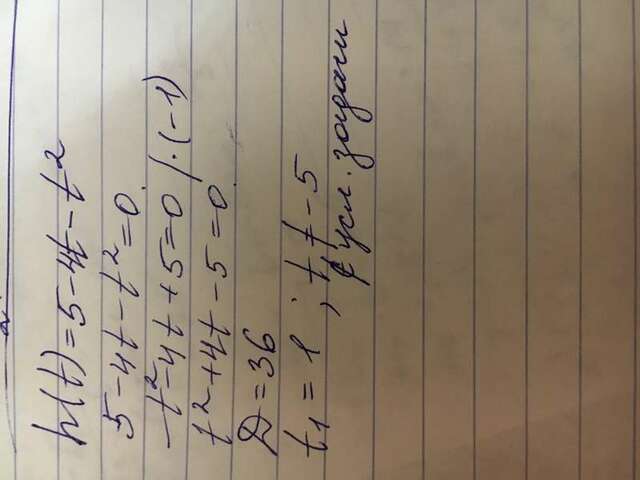 h(t)=5-4t-t²
5-4t-t²=0.
-t²-4t+5=0 /·(-1)
t²+4t-5=0.
D=36
t₁=1 ; t₂≠-5
∉ усл. задачи